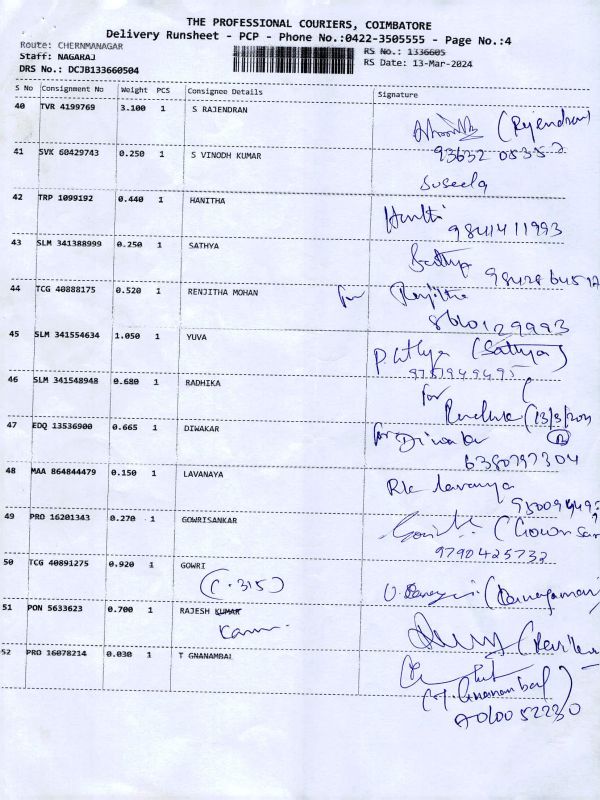 THE PROFESSIONAL COURIERS, COIMBATORE
Delivery Runsheet - PCP - Phone No.:0422-3505555 - Page No.:4
Route: CHERNMANAGAR
Staff: NAGARAJ
DRS No.: DCJB133660504
RS No.: 1336605
RS Date: 13-Mar-2024
S No Consignment No Weight PCS Consignee Details Signature
40 TVR 4199769 3.100 1 S RAJENDRAN
(Rajendran)
41 SVK 60429743 0.250 1 S VINODH KUMAR
Suseela
42 TRP 1099192 0.440 1 HANITHA
9841411993
43 SLM 341388999 0.250 1 SATHYA
Sathya
44 TCG 40888175 0.520 1 RENJITHA MOHAN for Renjitha
8660129993
45 SLM 341554634 1.050 1 YUVA
(Sathya)
46 SLM 341548948 0.680 1 RADHIKA for
47 EDQ 13536900 0.665 1 DIWAKAR for Diwakar
6380797304
48 MAA 864844479 0.150 1 LAVANAYA
Rk Lavanya
49 PRO 16201343 0.270 1 GOWRISANKAR
9790425732
50 TCG 40891275 0.920 1 GOWRI
(C-315)
51 PON 5633623 0.700 1 RAJESH KUMAR
52 PRO 16078214 0.030 1 T GNANAMBAL
(T. Gnanambal)